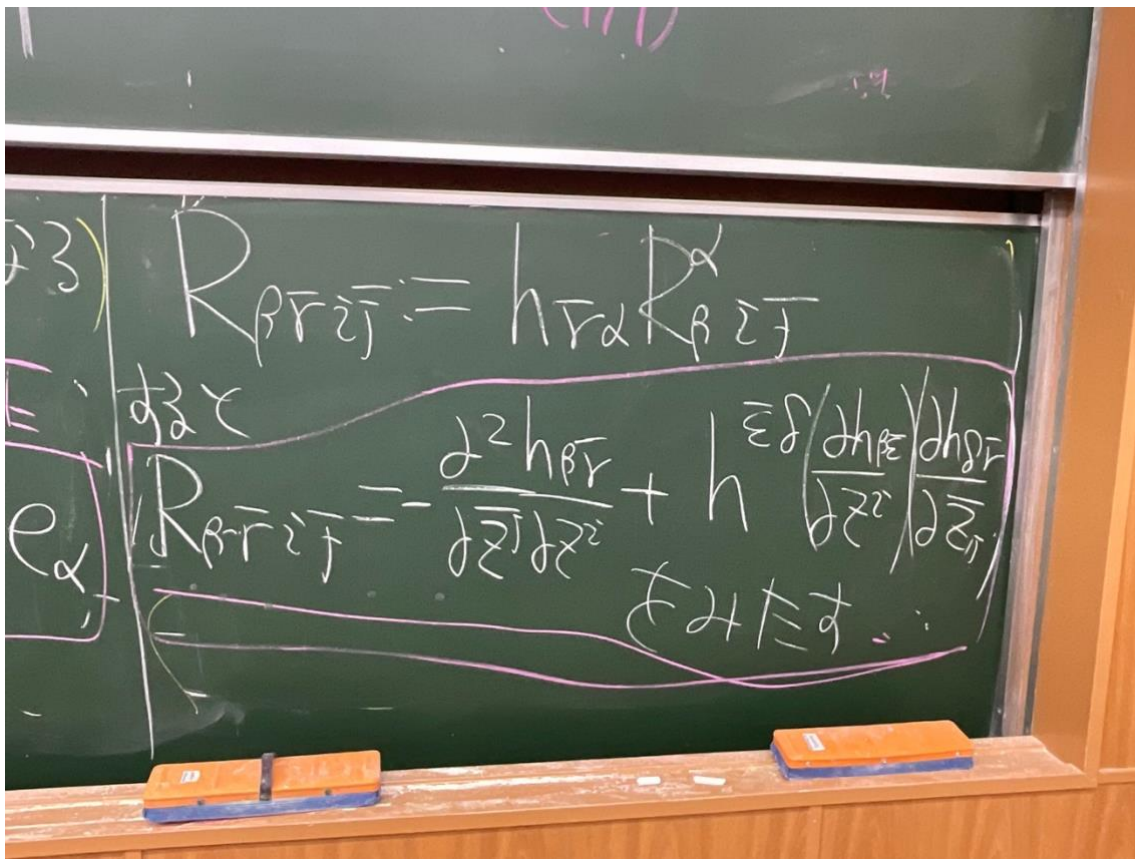 なる)
R_{β\bar{γ}i\bar{j}} := h_{\bar{γ}α} R^{α}_{β i\bar{j}}
E
すると
e_α
R_{β\bar{γ}i\bar{j}} = -\frac{∂^2 h_{β\bar{γ}}}{∂\bar{z}^j ∂z^i} + h^{\bar{ε}δ} \left(\frac{∂h_{β\bar{ε}}}{∂z^i}\right) \left(\frac{∂h_{δ\bar{γ}}}{∂\bar{z}_j}\right)
をみたす.